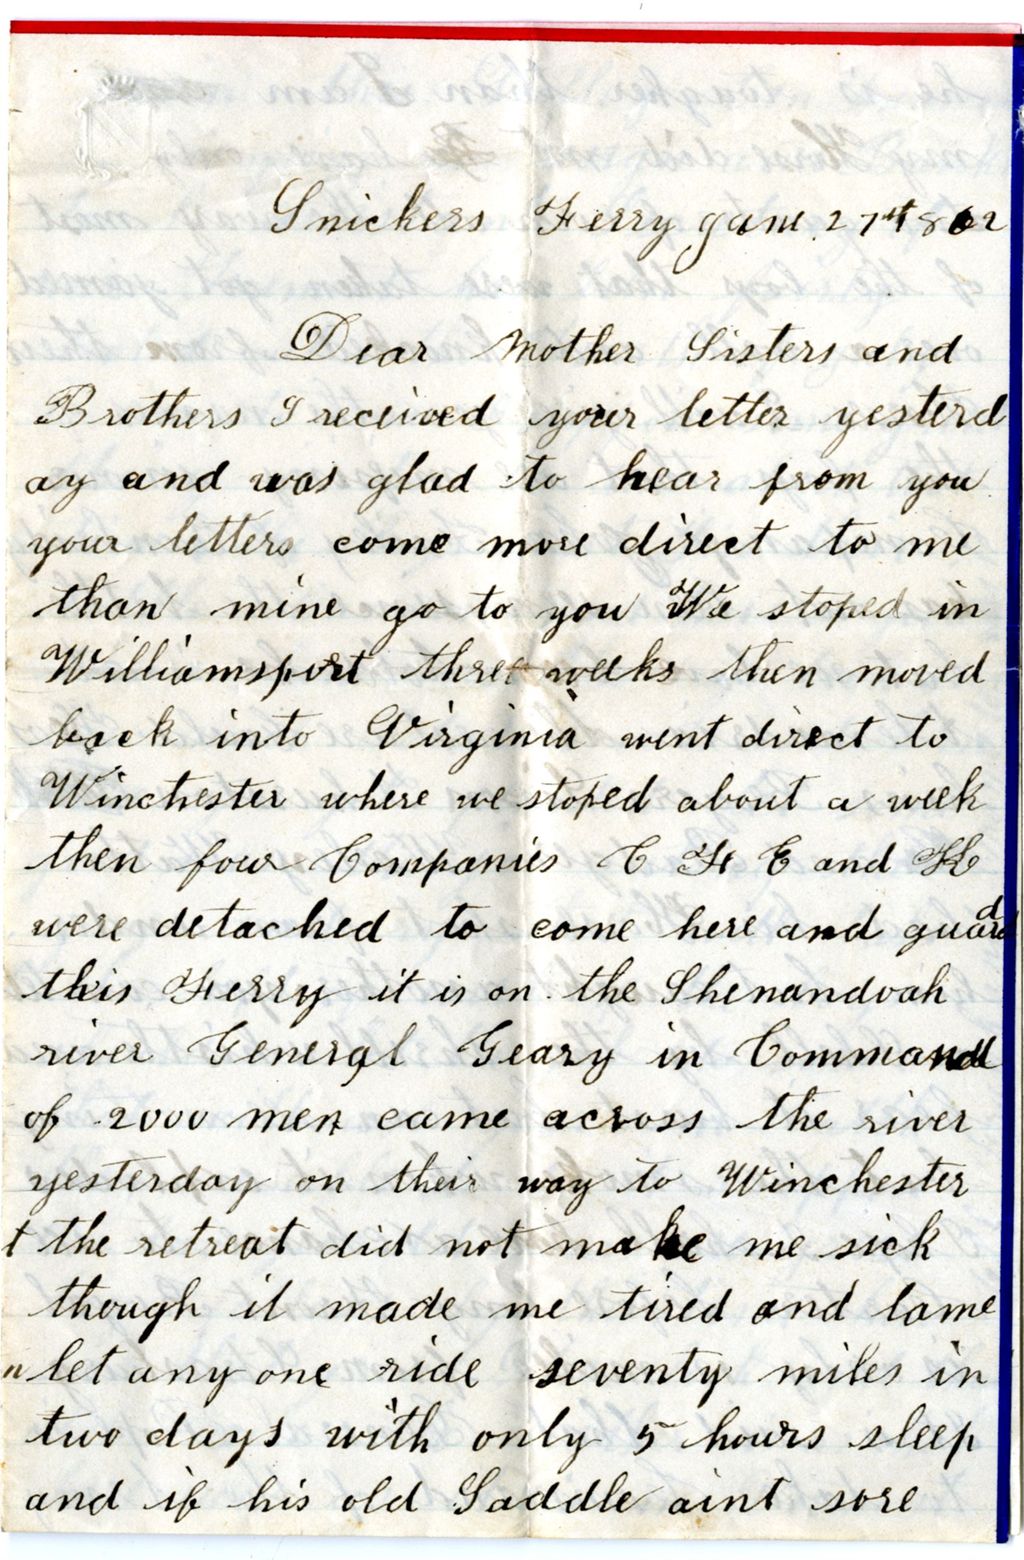 Snickers Ferry June 27th 1862
Dear Mother Sisters and
Brothers I received your letter yesterd
ay and was glad to hear from you
your letters come more direct to me
than mine go to you We stoped in
Williamsport three weeks then moved
back into Virginia went direct to
Winchester where we stoped about a week
then four Companies C F E and K
were detached to come here and guard
this Ferry it is on the Shenandoah
river General Geary in Command
of 2000 men came across the river
yesterday on their way to Winchester
the retreat did not make me sick
though it made me tired and lame
let any one ride seventy miles in
two days with only 5 hours sleep
and if his old Saddle aint sore